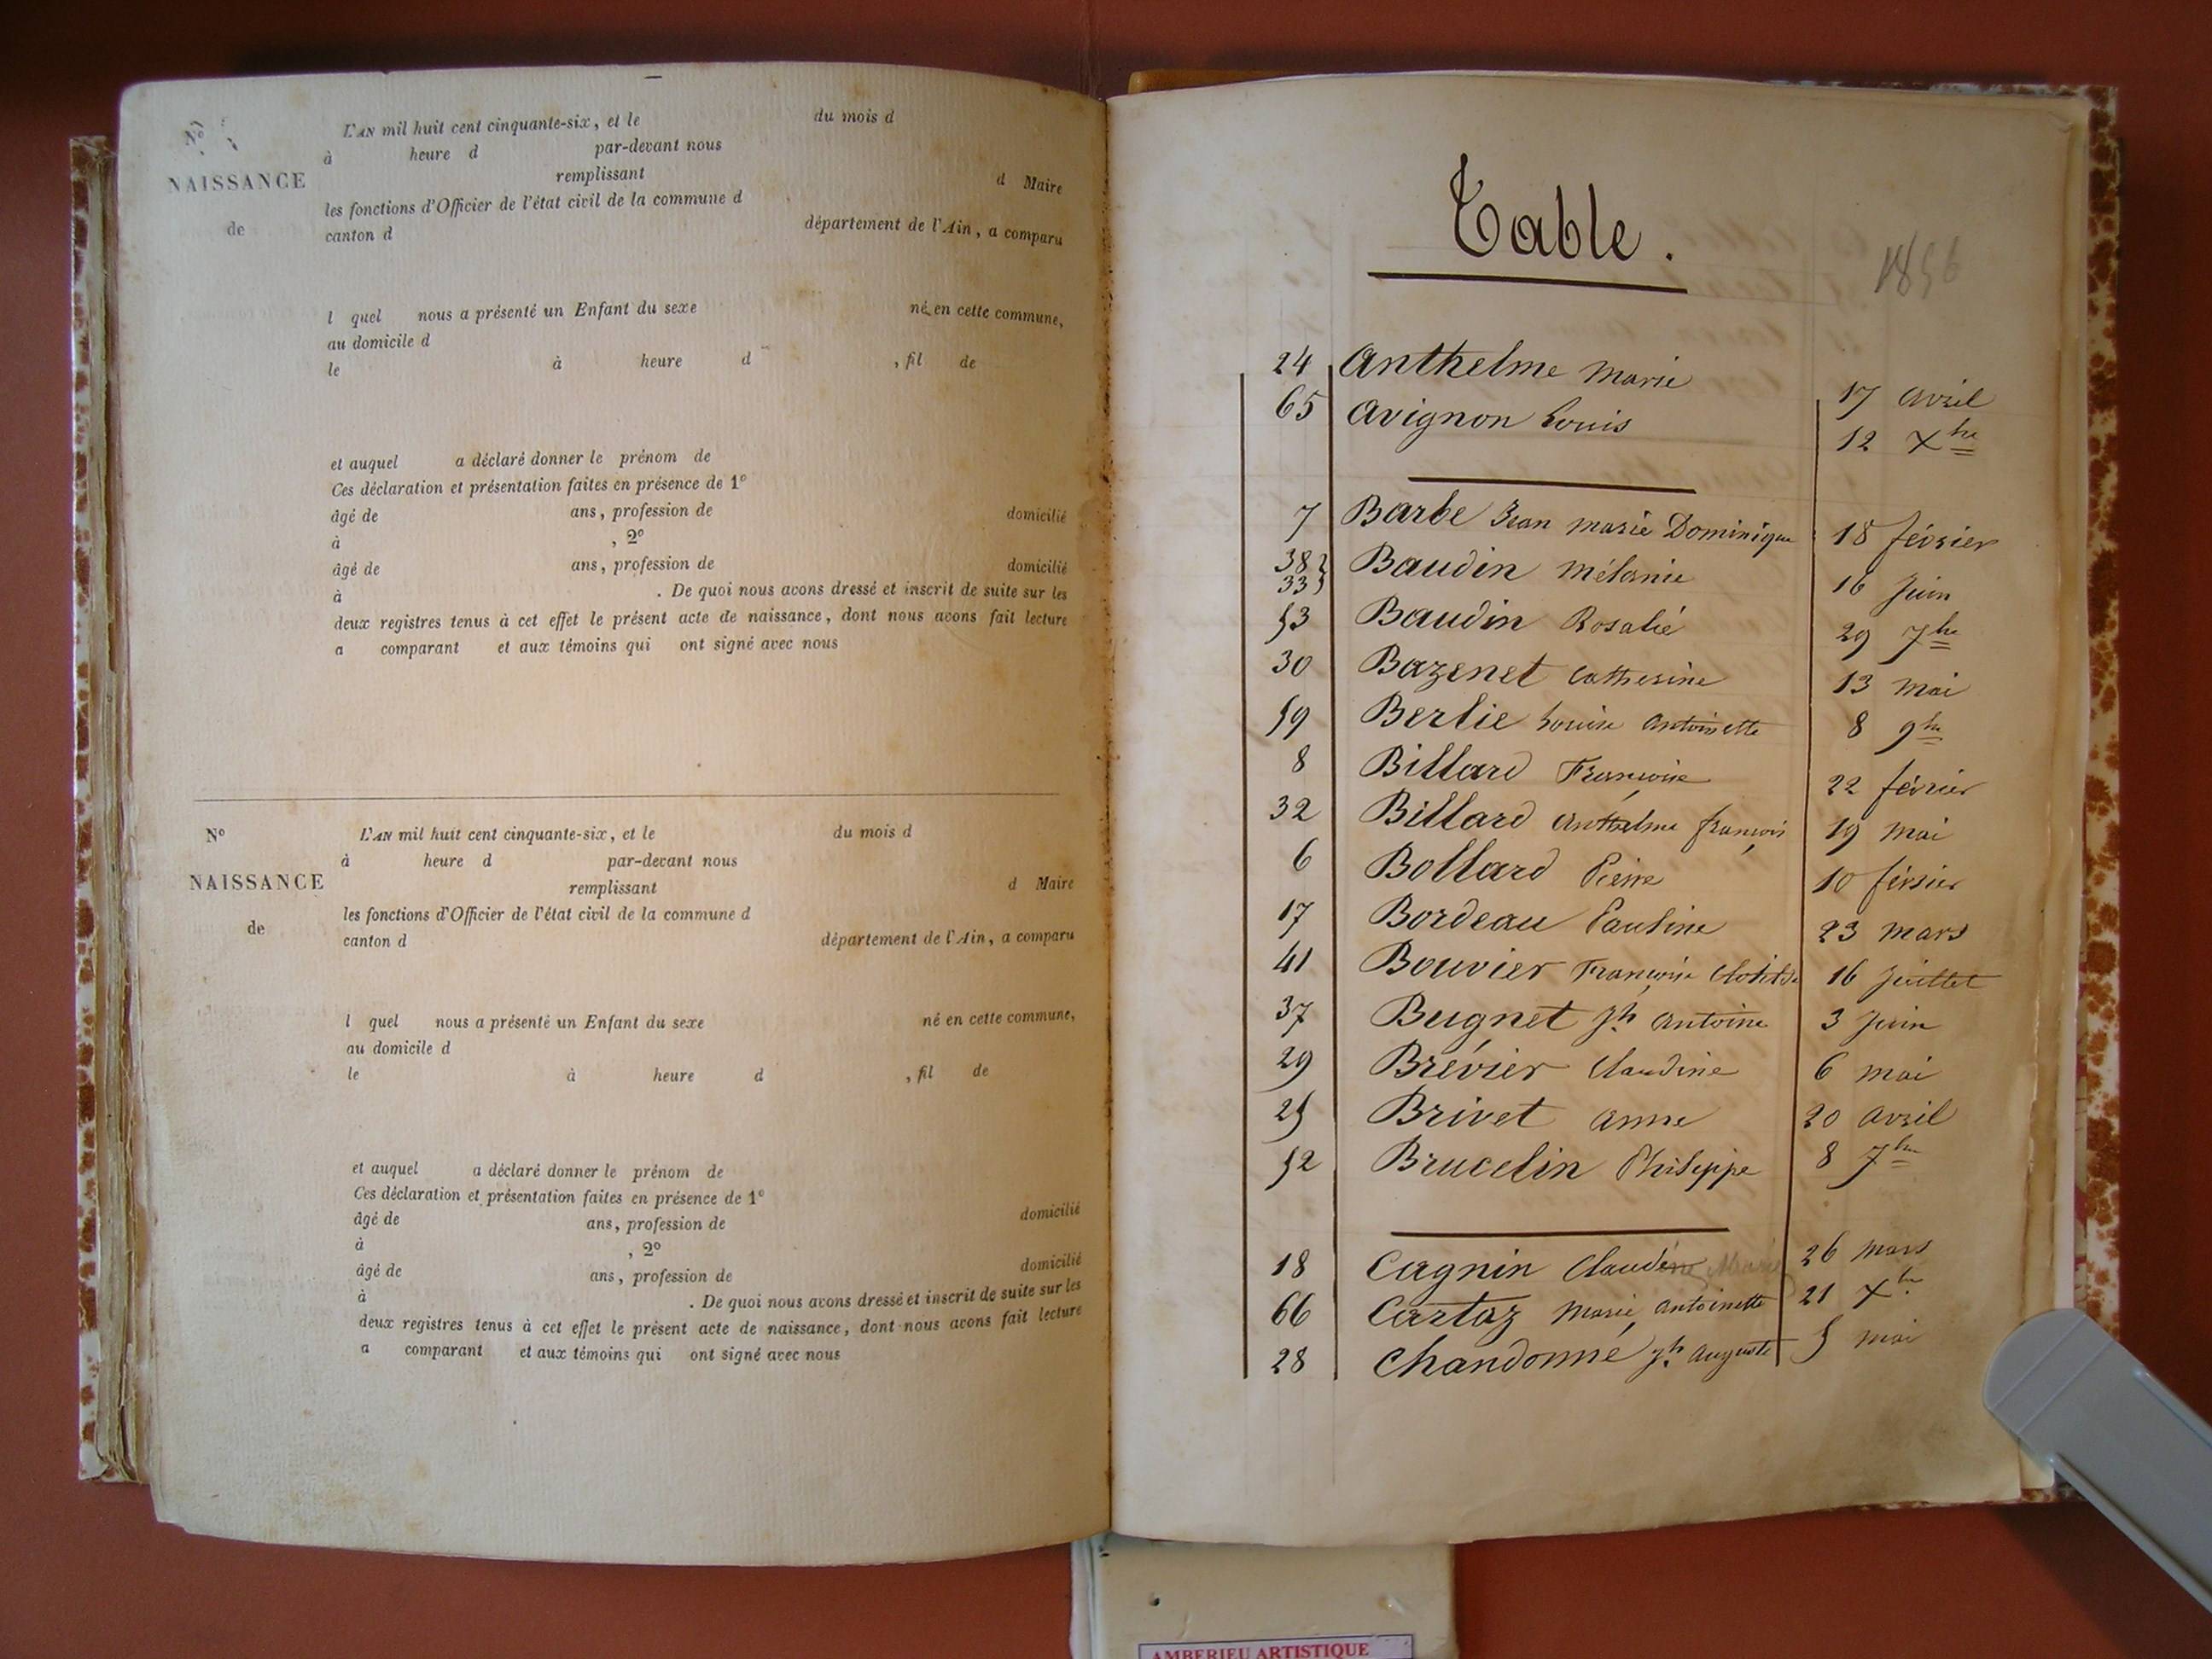 N°
NAISSANCE
de
L'AN mil huit cent cinquante-six, et le du mois d
à heure d par-devant nous
remplissant d Maire
les fonctions d'Officier de l'état civil de la commune d
canton d département de l'Ain, a comparu
l quel nous a présenté un Enfant du sexe né en cette commune,
au domicile d
le à heure d , fil de
et auquel a déclaré donner le prénom de
Ces déclaration et présentation faites en présence de 1°
âgé de ans, profession de domicilié
à , 2°
âgé de ans, profession de domicilié
à . De quoi nous avons dressé et inscrit de suite sur les
deux registres tenus à cet effet le présent acte de naissance, dont nous avons fait lecture
a comparant et aux témoins qui ont signé avec nous
N°
NAISSANCE
de
L'AN mil huit cent cinquante-six, et le du mois d
à heure d par-devant nous
remplissant d Maire
les fonctions d'Officier de l'état civil de la commune d
canton d département de l'Ain, a comparu
l quel nous a présenté un Enfant du sexe né en cette commune,
au domicile d
le à heure d , fil de
et auquel a déclaré donner le prénom de
Ces déclaration et présentation faites en présence de 1°
âgé de ans, profession de domicilié
à , 2°
âgé de ans, profession de domicilié
à . De quoi nous avons dressé et inscrit de suite sur les
deux registres tenus à cet effet le présent acte de naissance, dont nous avons fait lecture
a comparant et aux témoins qui ont signé avec nous
Table.
1856
24 Anthelme Marie 17 avril
65 Avignon Louis 12 Xbre
7 Barbe Jean Marie Dominique 18 février
38 Baudin Mélanie 16 Juin
33
53 Baudin Rosalie 29 7bre
30 Bazenet Catherine 13 mai
59 Berlie Louise Antoinette 8 9bre
8 Billard Françoise 22 février
32 Billard Anthelme françois 19 mai
6 Bollard Pierre 10 février
17 Bordeau Pauline 23 mars
41 Bouvier Françoise Clotilde 16 Juillet
37 Bugnet Jh Antoine 3 Juin
29 Brévier Claudine 6 mai
25 Brivet Anne 20 avril
52 Brucelin Philippe 8 7bre
18 Cagnin Claudine Marie 26 mars
66 Cartaz Marie Antoinette 21 Xbre
28 Chandonné Jh Auguste 5 mai
AMBERIEU ARTISTIQUE